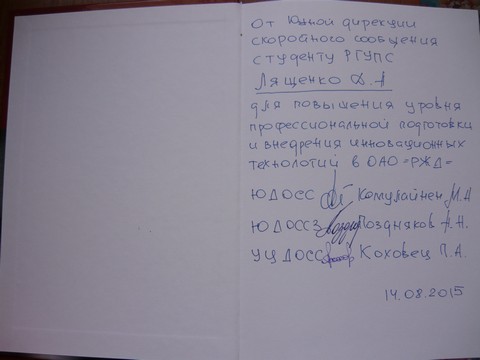 От Южной дирекции
скоростного сообщения
студенту РГУПС
Лященко Д.А
для повышения уровня
профессиональной подготовки
и внедрения инновационных
технологий в ОАО "РЖД"
ЮДОСС Комулайнен М.А
ЮДОССЗ Поздняков А.Н.
УЦДОСС Коховец П.А.
14.08.2015